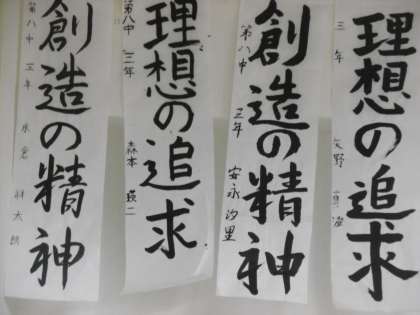 理想の追求
三年
矢野
創造の精神
第八中 三年 安永 沙里
理想の追求
第八中 三年 森本 瑛二
創造の精神
第八中 三年 永倉 太朗